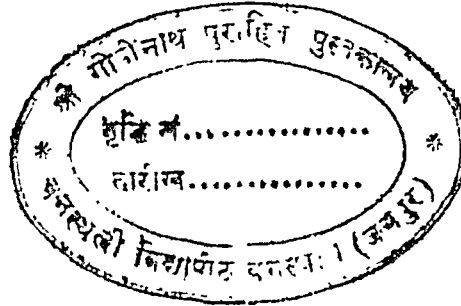 श्री गोपीनाथ पुरोहित पुस्तकालय
वृद्धि सं..................
तारीख..................
वनस्थली विद्यापीठ (जयपुर)